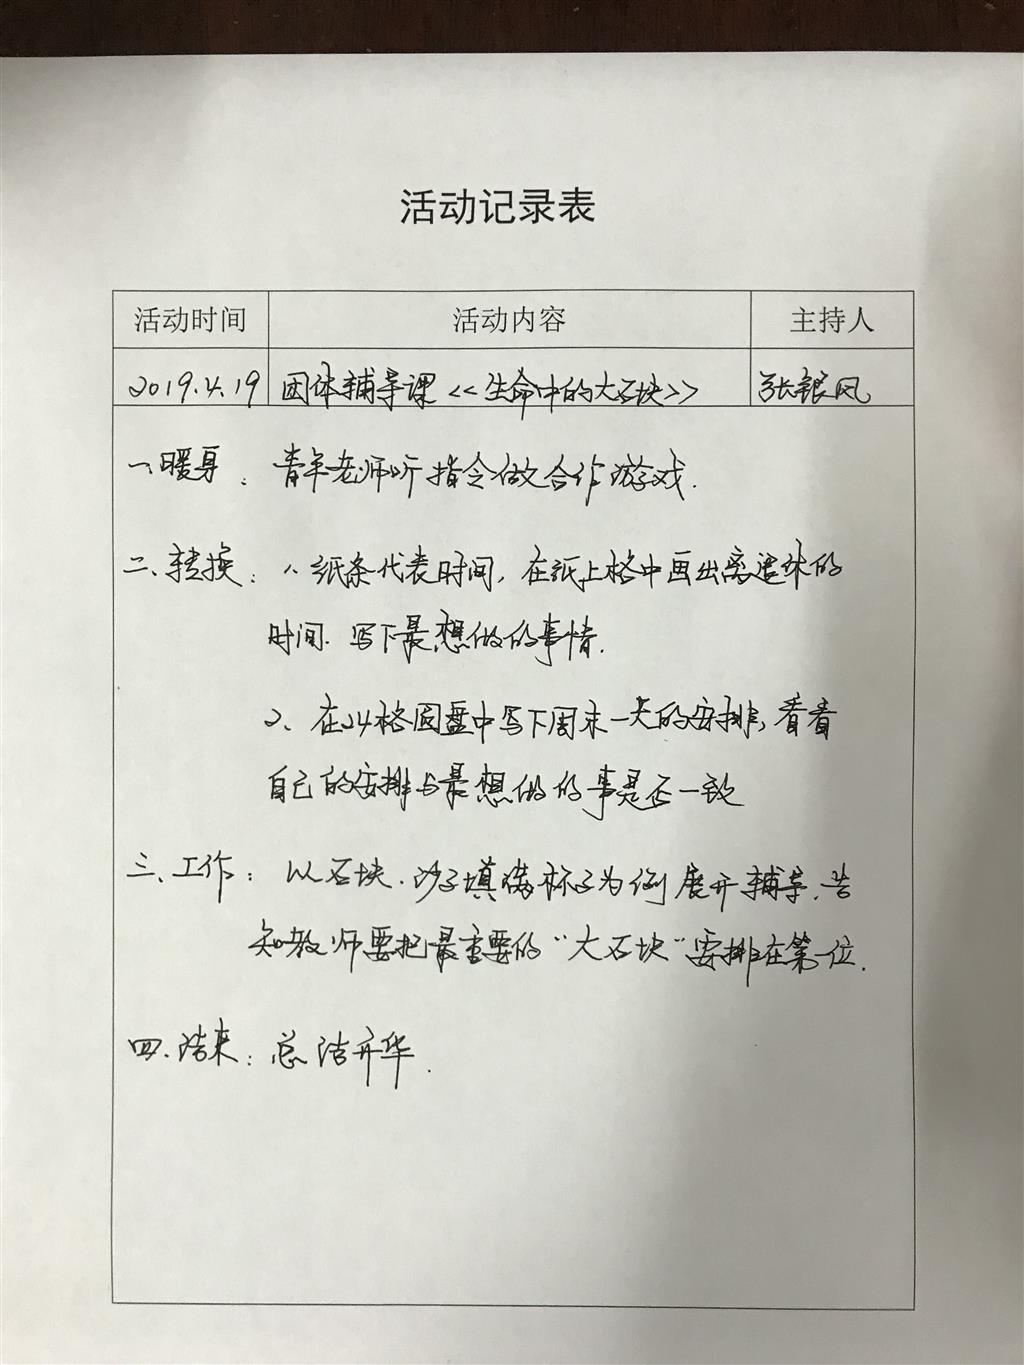 活动记录表
活动时间 活动内容 主持人
2019.4.19 团体辅导课<<生命中的大石块>> 张银风
一、暖身：青年老师听指令做合作游戏.
二、转换：1、纸条代表时间，在纸上格中画出离退休的
时间.写下最想做的事情.
2、在24格圆盘中写下周末一天的安排，看看
自己的安排与最想做的事是否一致
三、工作：以石块、沙子填满杯子为例展开辅导，告
知教师要把最重要的“大石块”安排在第一位.
四、结束：总结升华.